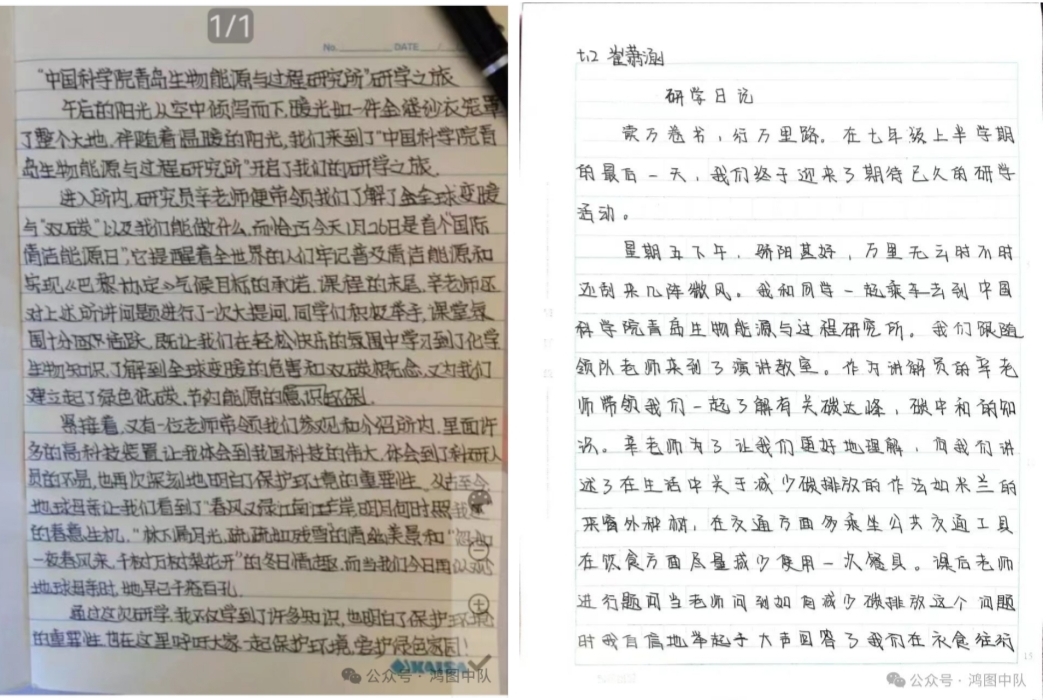 1/1
No. DATE
“中国科学院青岛生物能源与过程研究所”研学之旅
午后的阳光从空中倾泻而下,暖光如一件金缕纱衣笼罩
了整个大地,伴随着温暖的阳光,我们来到了“中国科学院青
岛生物能源与过程研究所”开启了我们的研学之旅。
进入所内,研究员辛老师便带领我们了解了全球变暖
与“双碳”以及我们能做什么,而恰巧今天1月26日是首个“国际
清洁能源日”,它提醒着全世界的人们牢记普及清洁能源和
实现《巴黎协定》气候目标的承诺。课程的末尾,辛老师还
对上述所讲问题进行了一次大提问,同学们积极举手,课堂氛
围十分活跃,既让我们在轻松快乐的氛围中学习到了化学
生物知识,了解到全球变暖的危害和双碳概念,又为我们
建立起了绿色低碳,节约能源的意识
紧接着,又有一位老师带领我们参观和介绍所内,里面许
多的高科技装置,让我体会到我国科技的伟大,体会到了科研人
员的不易,也再次深刻地明白了保护环境的重要性。从古至今
地球母亲让我们看到了“春风又绿江南岸,明月何时照我还”
的春意生机,“林下漏月光,疏疏如残雪”的清幽美景和“忽如
一夜春风来,千树万树梨花开”的冬日情趣,而当我们今日再
地球母亲时,她早已千疮百孔。
通过这次研学,我不仅学到了许多知识,也明白了保护环境
的重要性,也在这里呼吁大家一起保护环境,爱护绿色家园!
KAISA
公众号·鸿图中队
七.2 崔萧涵
研学日记
读万卷书,行万里路。在七年级上半学期
的最后一天,我们终于迎来了期待已久的研学
活动。
星期五下午,骄阳甚好,万里无云时不时
还刮来几阵微风。我和同学一起乘车去到中国
科学院青岛生物能源与过程研究所。我们跟随
领队老师来到了演讲教室。作为讲解员的辛老
师带领我们一起了解有关碳达峰,碳中和的知
识。辛老师为了让我们更好地理解,向我们讲
述了在生活中关于减少碳排放的作法如米兰的
来窗外种树,在交通方面多乘坐公共交通工具
在饮食方面尽量减少使用一次餐具。课后老师
进行题问当老师问到如何减少碳排放这个问题
时我自信地举起手大声回答了我们在衣食住行
15
公众号·鸿图中队